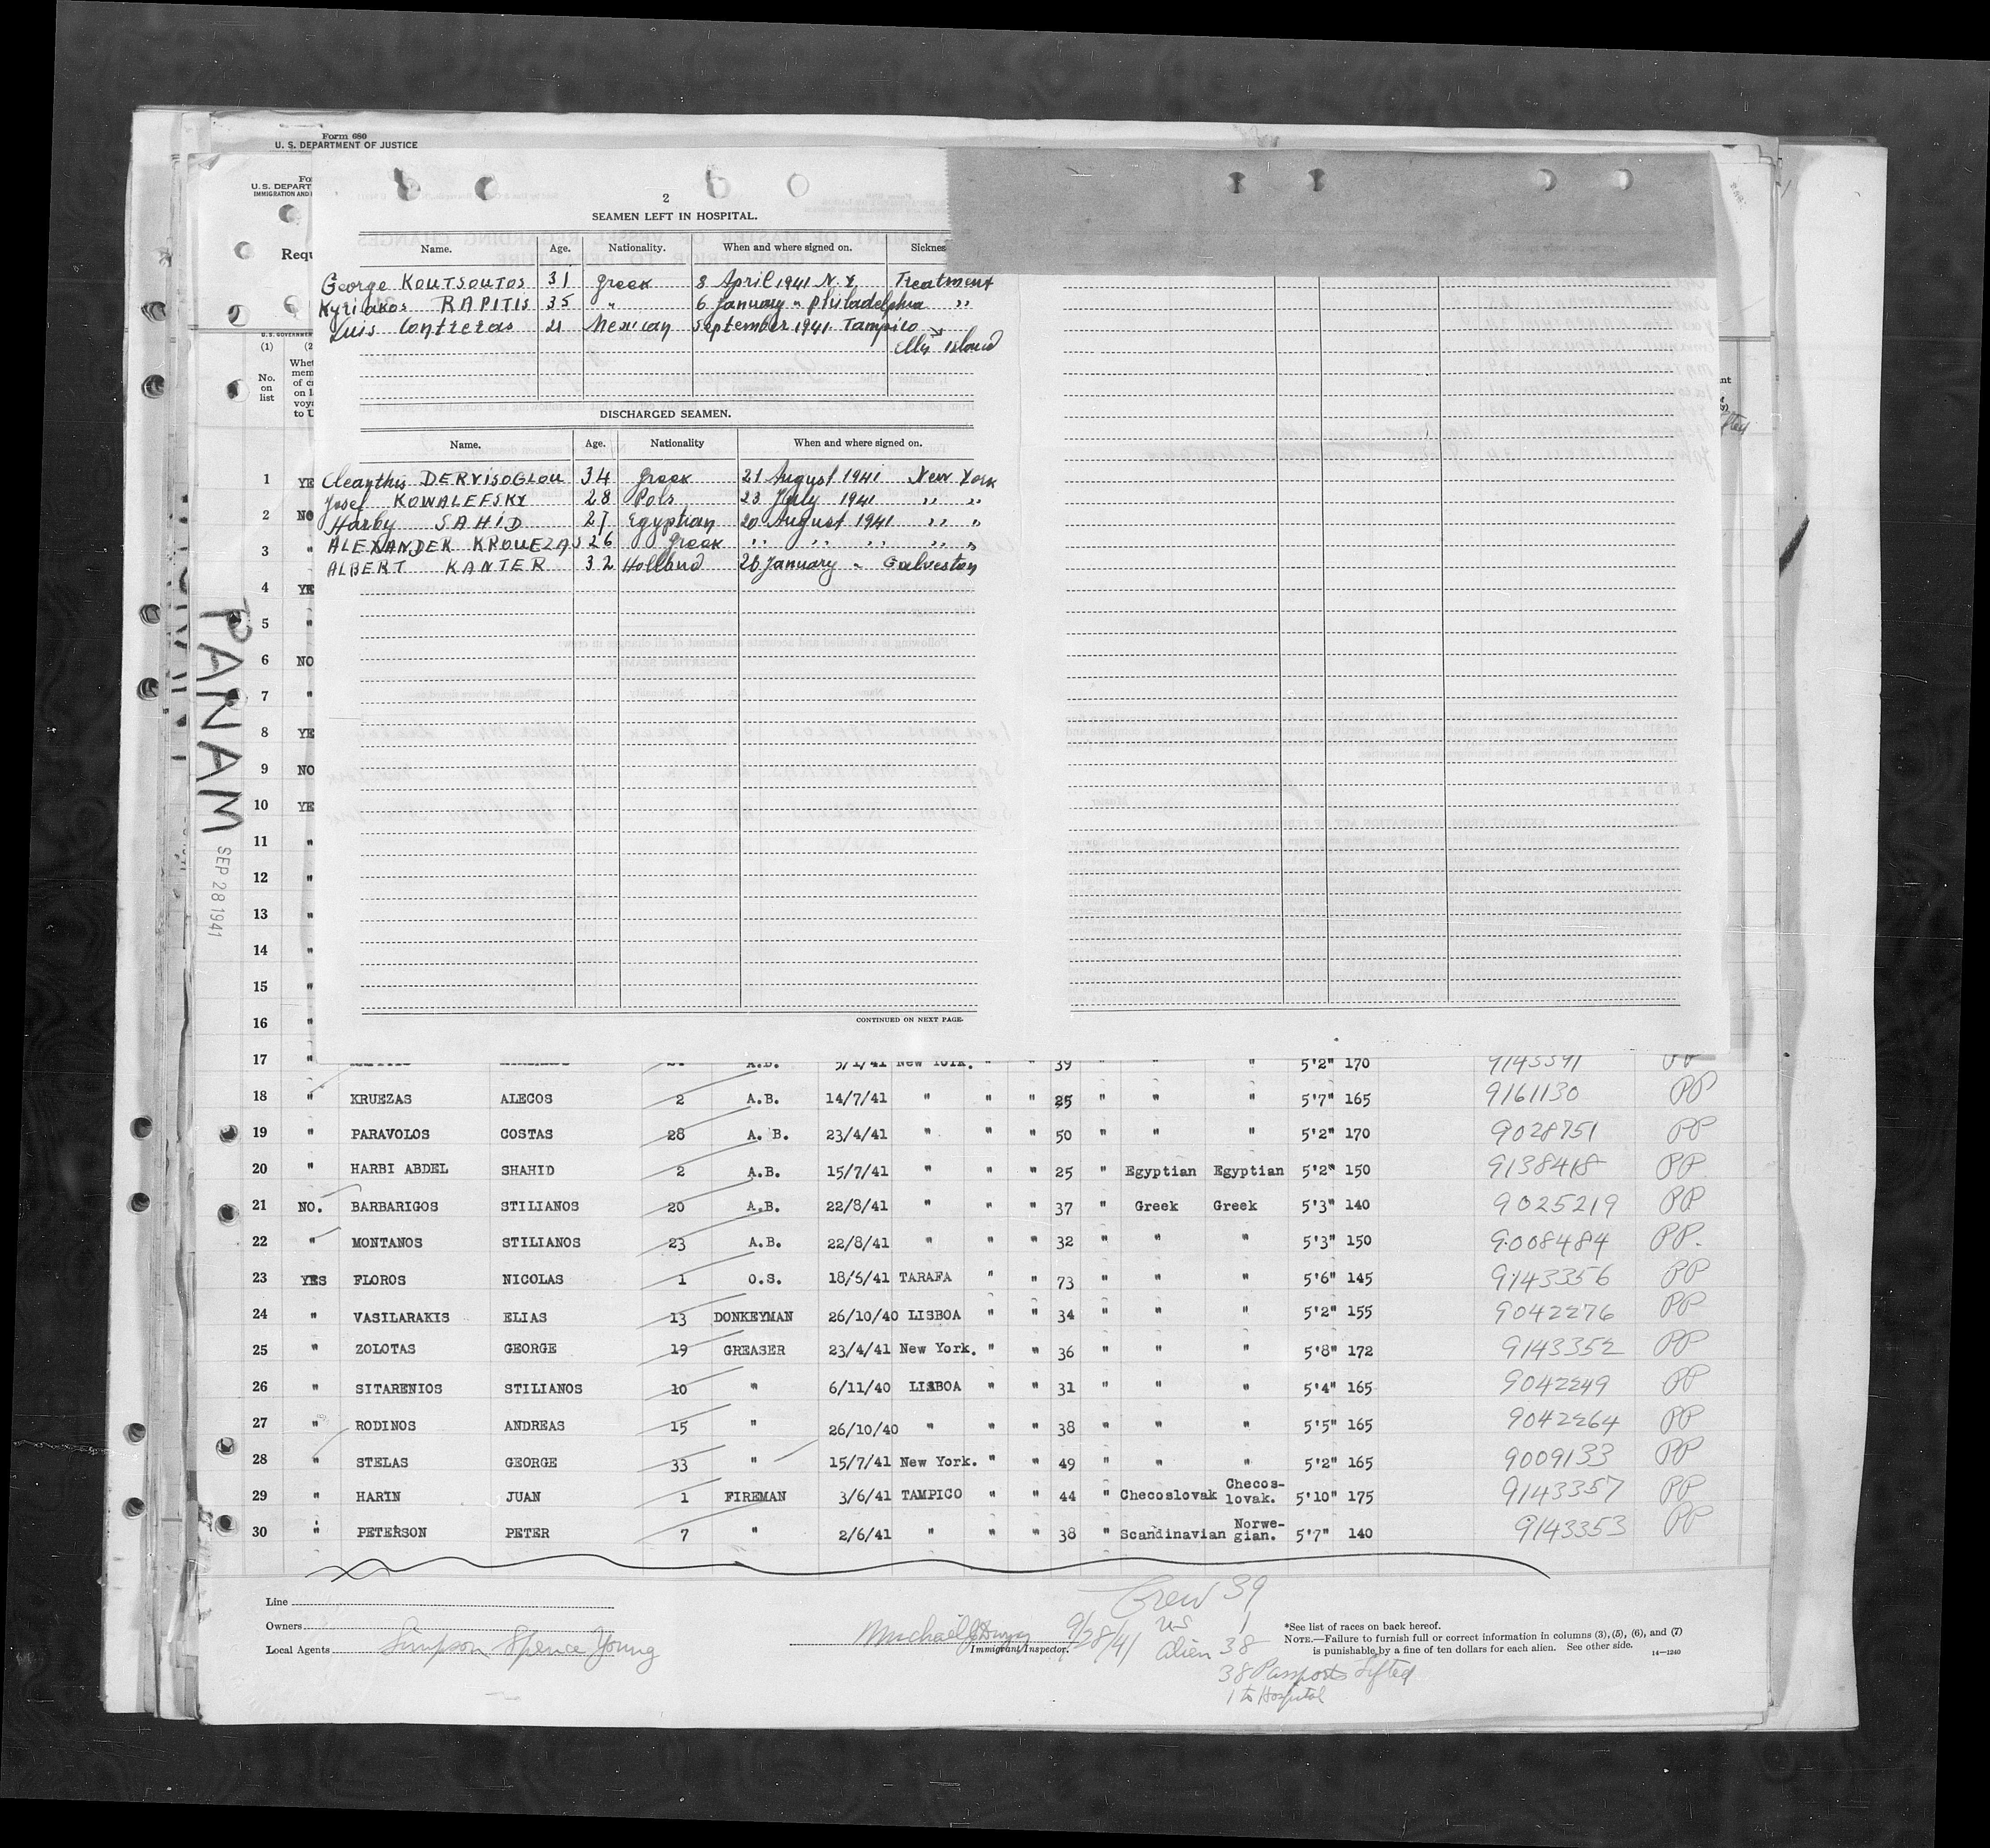 Form 680
U. S. DEPARTMENT OF JUSTICE
U.S. DEPART
IMMIGRATION AND
Requ
(1)
No. on list
2
SEAMEN LEFT IN HOSPITAL.
Name. Age. Nationality. When and where signed on. Sickness
George KOUTSOUTOS 31 Greek 8 April 1941 N.Y. Treatment
Kyriakos RAPITIS 35 " 6 January " Philadelphia "
Luis Contreras 21 Mexican September 1941 Tampico "
Ellis Island
DISCHARGED SEAMEN.
Name. Age. Nationality When and where signed on.
Cleanthis DERVISOGLOU 34 Greek 21 August 1941 New York
Josef KOWALEFSKY 28 Pols 23 July 1941 " "
Harby SAHID 27 Egyptian 20 August 1941 " "
ALEXANDER KROUEZAS 26 Greek " " " " "
ALBERT KANTER 32 Holland 26 January " Galveston
CONTINUED ON NEXT PAGE.
PANAM
SEP 28 1941
1 YE
2 NO
3 "
4 YE
5 "
6 NO
7 "
8 YE
9 NO
10 YE
11 "
12 "
13 "
14 "
15 "
16 "
17 " A.B. 5/1/41 New York. " " 39 " " " 5'2" 170 9143391 PP
18 " KRUEZAS ALECOS 2 A.B. 14/7/41 " " " 25 " " " 5'7" 165 9161130 PP
19 " PARAVOLOS COSTAS 28 A. B. 23/4/41 " " " 50 " " " 5'2" 170 9028751 PP
20 " HARBI ABDEL SHAHID 2 A.B. 15/7/41 " " " 25 " Egyptian Egyptian 5'2" 150 9138418 PP
21 NO. BARBARIGOS STILIANOS 20 A.B. 22/8/41 " " " 37 " Greek Greek 5'3" 140 9025219 PP
22 " MONTANOS STILIANOS 23 A.B. 22/8/41 " " " 32 " " " 5'3" 150 9008484 PP.
23 YES FLOROS NICOLAS 1 O.S. 18/5/41 TARAFA " " 73 " " " 5'6" 145 9143356 PP
24 " VASILARAKIS ELIAS 13 DONKEYMAN 26/10/40 LISBOA " " 34 " " " 5'2" 155 9042276 PP
25 " ZOLOTAS GEORGE 19 GREASER 23/4/41 New York. " " 36 " " " 5'8" 172 9143352 PP
26 " SITARENIOS STILIANOS 10 " 6/11/40 LISBOA " " 31 " " " 5'4" 165 9042249 PP
27 " RODINOS ANDREAS 15 " 26/10/40 " " " 38 " " " 5'5" 165 9042264 PP
28 " STELAS GEORGE 33 " 15/7/41 New York. " " 49 " " " 5'2" 165 9009133 PP
29 " HARIN JUAN 1 FIREMAN 3/6/41 TAMPICO " " 44 " Checoslovak Checos-lovak. 5'10" 175 9143357 PP
30 " PETERSON PETER 7 " 2/6/41 " " " 38 " Scandinavian Norwe-gian. 5'7" 140 9143353 PP
Line
Owners
Local Agents Simpson Spence Young
Michael 9/28/41
Immigrant Inspector.
Crew 39
US 1
Alien 38
38 Passports Lifted
1 to Hospital
*See list of races on back hereof.
NOTE.—Failure to furnish full or correct information in columns (3), (5), (6), and (7)
is punishable by a fine of ten dollars for each alien. See other side.
14—1240